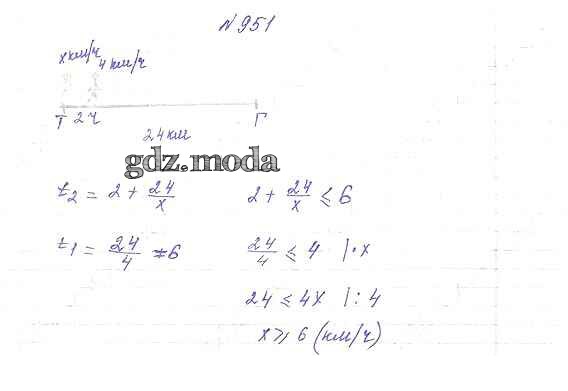 N951
x км/ч
4 км/ч
Т 2ч Г
24 км
gdz.moda
t₂ = 2 + 24/x 2 + 24/x ≤ 6
t₁ = 24/4 = 6 24/4 ≤ 4 |·x
24 ≤ 4x |: 4
x ≥ 6 (км/ч)